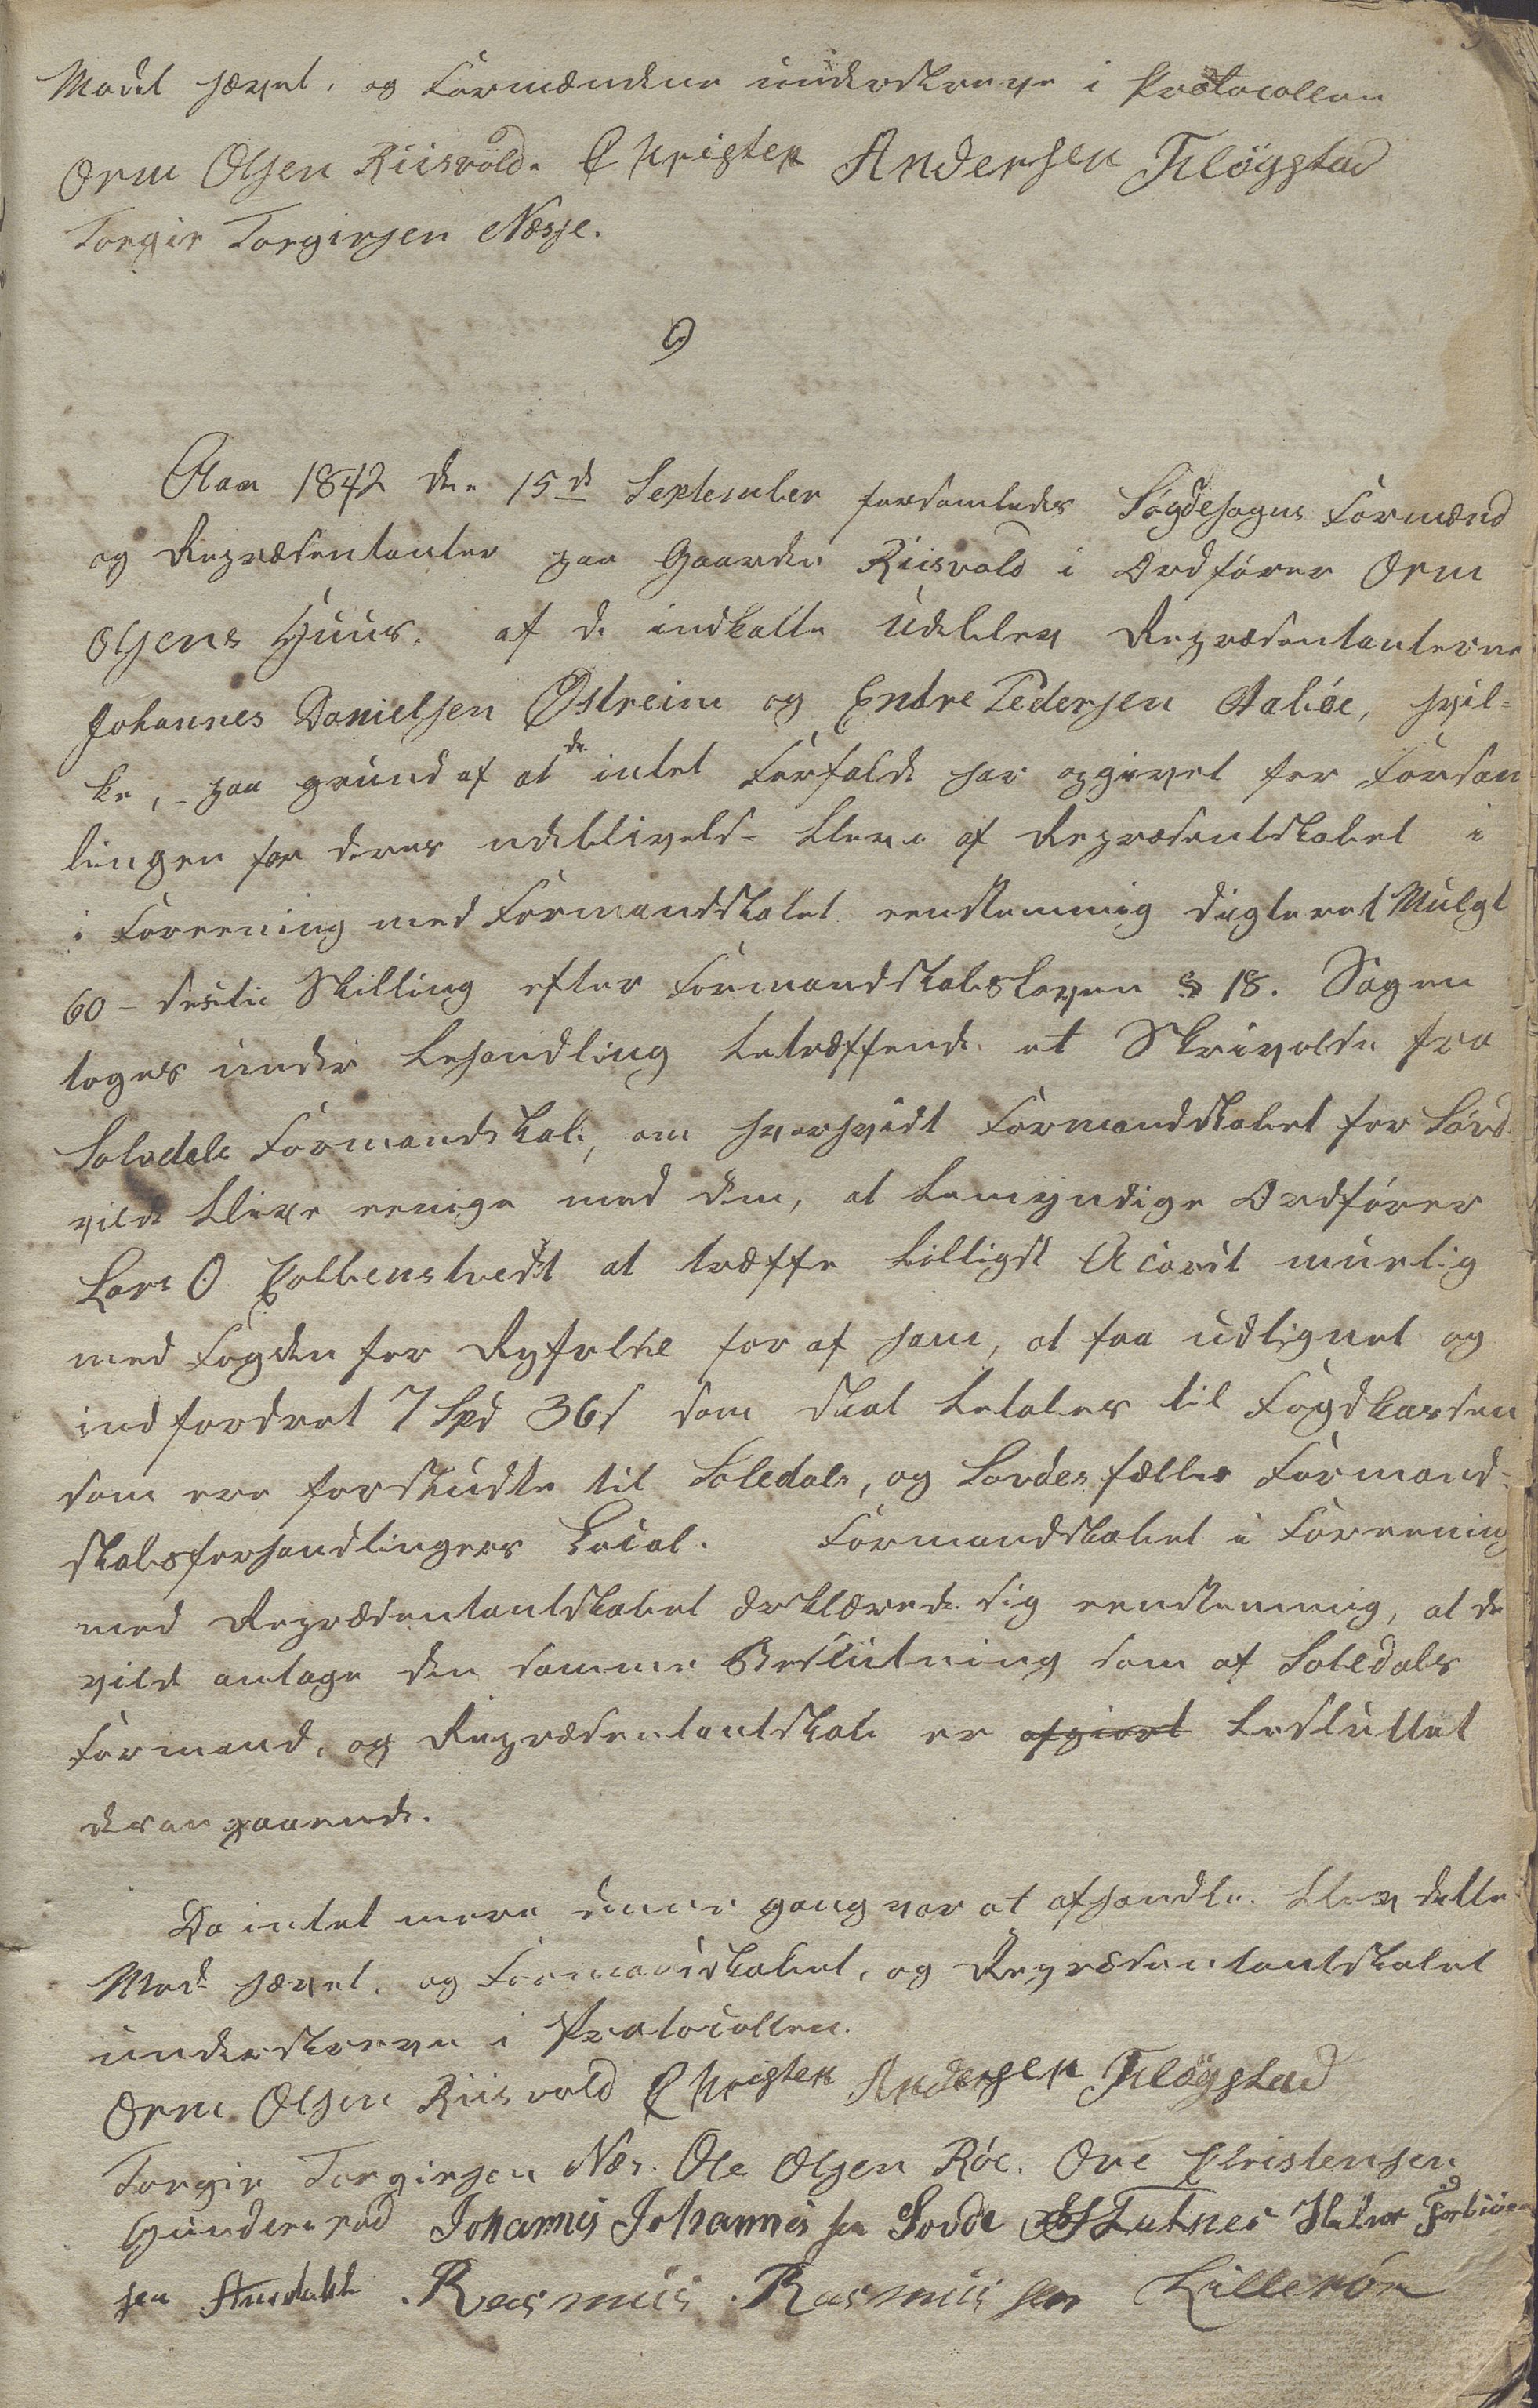 Mødet hævet, og Formændene underskreve i Protocollen
Orm Olsen Riisvold. Christen Andersen Fløgstad
Torgir Torgirsen Næsse.
9
Aar 1842 den 15de September forsamledes Søgdesogns Formænd
og Repræsentanter paa Gaarden Riisvold i Ordfører Orm
Olsens Huus. af de indkalte Udeblev Repræsentanterne
Johannes Danielsen Østreim og Endre Pedersen Aabøe, hvil-
ke, - paa grund af at de intet Forfald har opgivet for Forsam
lingen for deres udeblivelse bleve af Repræsentskabet i
i Foreening med Formandskabet eenstemmig digteret Mulgt
60 - sexti Skilling efter Formandskabsloven § 18. Sagen
toges under behandling betræffende et Skrivelse fra
Soledals Formandskab, om hvorvidt Formandskabet for Sovd
vilde blive eenige med dem, at bemyndige Ordfører
Lars O Kolbenstvedt at træffe billigst Acord muelig
med Fogden for Ryfylke for af ham, at faa udlignet og
indfordret 7 Spd 36 s som skal betales til Fogdkassen
som ere forskudte til Soledals, og Sovdes fælles Formand-
skabsforhandlingers Local. Formandskabet i Foreening
med Repræsentantskabet ærklærede sig eenstemmig, at de
vilde antage den samme Beslutning som af Soledals
Formand, og Repræsentantskab er afgiort besluttet
derangaaende.
Da intet mere denne gang var at afhandle. blev dette
Møde hævet, og Formandskabet, og Repræsentantskabet
underskreve i Protocollen.
Orm Olsen Riisvold Christen Andersen Fløgstad
Torgir Torgirsen Næs. Ole Olsen Röe. Ove Christensen
Hundersød Johannis Johannis sen Sovde Tutnes Halvor Torbiörn
sen Rasmus Rasmus sen Lilleröe